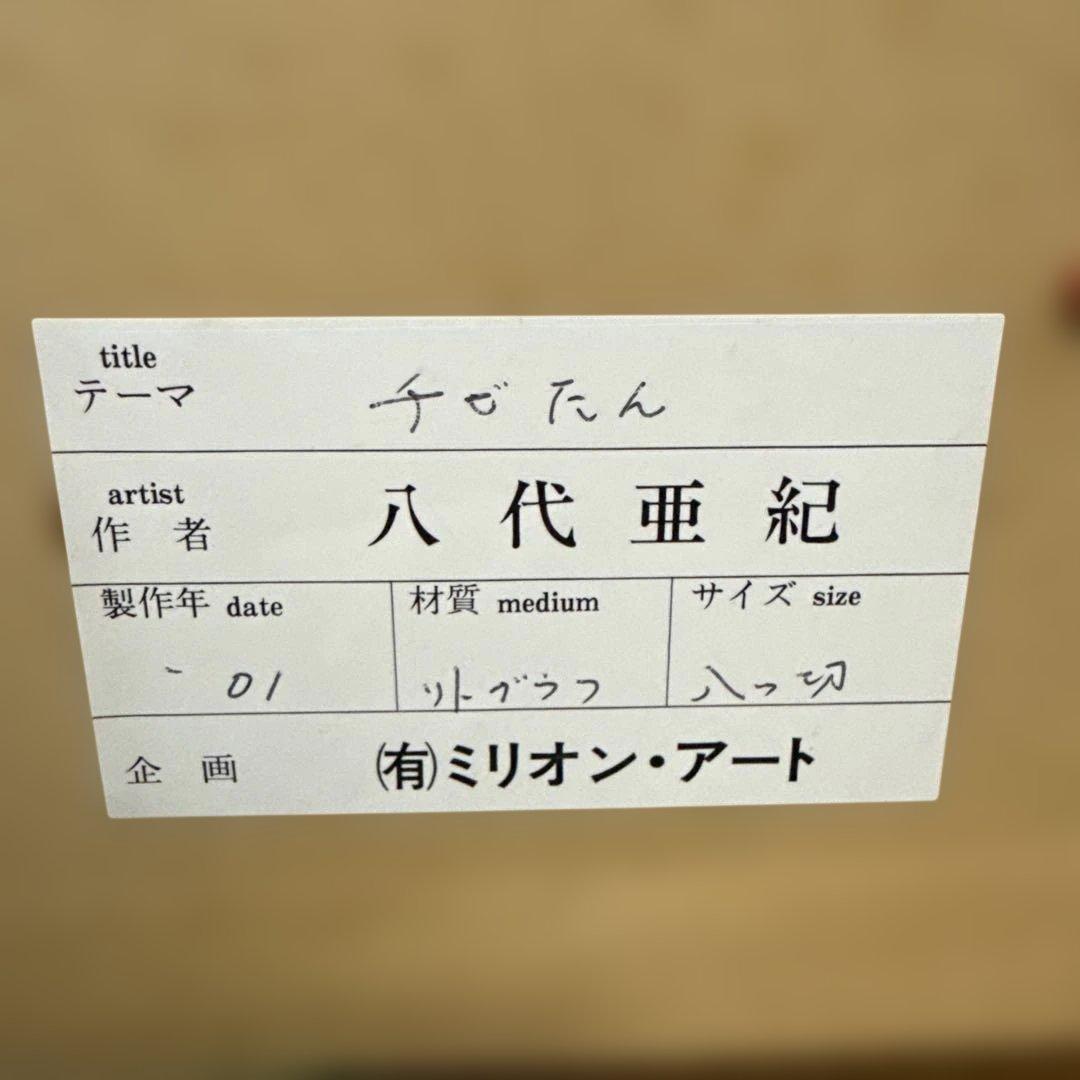 title
テーマ チゼたん
artist
作者 八代亜紀
製作年 date 材質 medium サイズ size
'01 リトグラフ 八つ切
企画 ㈲ミリオン・アート